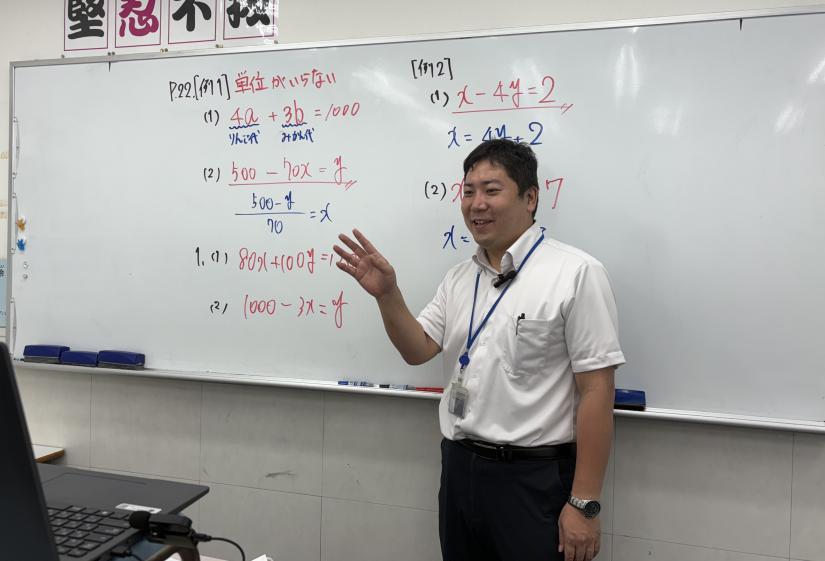 堅忍不抜
P.22.[例1] 単位がいらない
(1) 4a + 3b = 1000
りんご代 みかん代
(2) 500 - 70x = y
500-y
70
= x
1. (1) 80x+100y=1
(2) 1000 - 3x = y
[例2]
(1) x - 4y = 2
x = 4y + 2
(2) x 7
x =